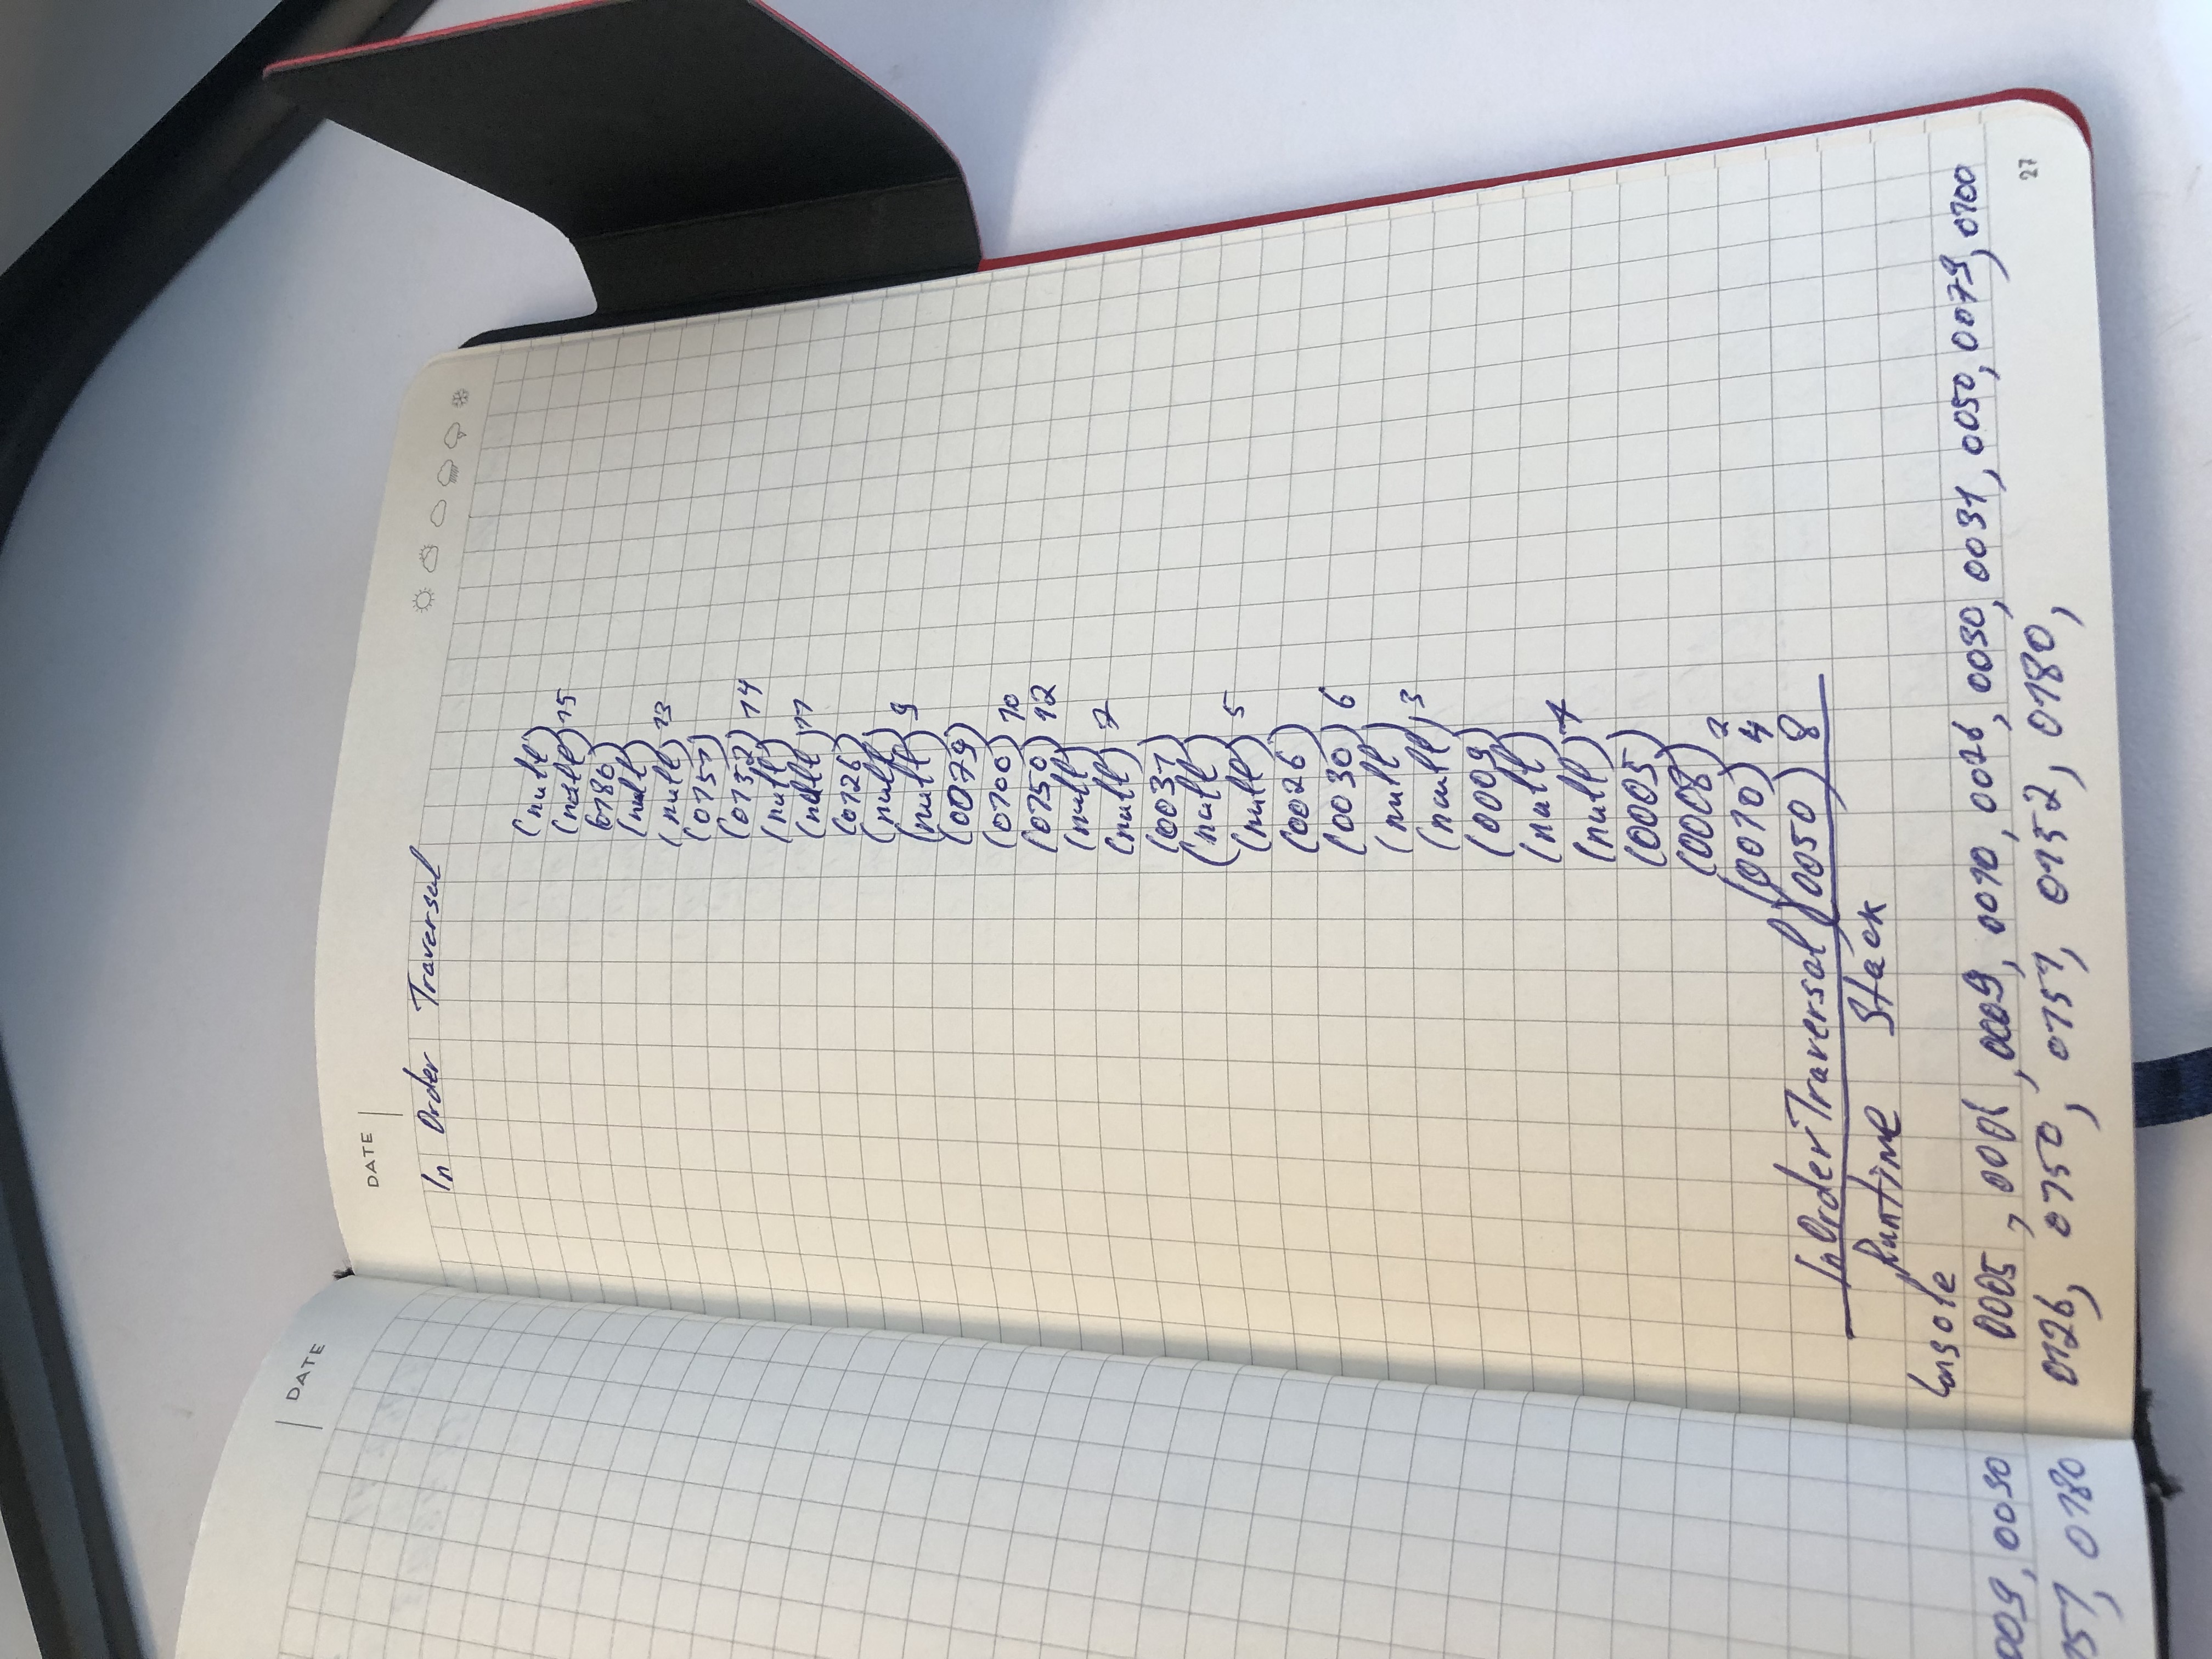 DATE
DATE
In Order Traversal
(null)
(null) 15
(0180)
(null)
(null) 13
(0151)
(0152) 14
(null)
(null) 11
(0126)
(null)
(null) 9
(0079)
(0100) 10
(0150) 12
(null)
(null) 7
(0031)
(null)
(null) 5
(0026)
(0030) 6
(null)
(null) 3
(0009)
(null)
(null) 1
(0005)
(0008) 2
(0010) 4
InOrderTraversal (0050) 8
Runtime Stack
Console
009, 0030
0005, 0008, 0009, 0010, 0026, 0030, 0031, 0050, 0079, 0100
151, 0180
0126, 0150, 0151, 0152, 0180,
27